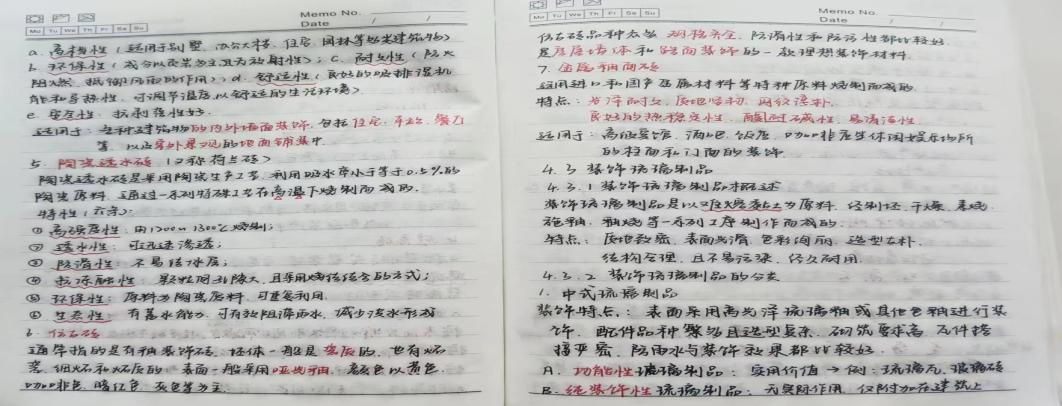 Mo Tu We Th Fr Sa Su
Memo No.
Date / /
a. 高档性（适用于别墅、办公大楼、住宅、园林等各类建筑物）
b. 环保性（成分以页岩为主且无放射性）；c. 耐久性（防火
阻燃、抵御风雨的作用）；d. 舒适性（良好的吸排湿机
能和导热性，可调节温度，以舒适的生活环境）
e. 安全性：抗剥落性好.
适用于：各种建筑物的内外墙面装饰，包括住宅、学校、餐厅
等，以及室外景观的地面铺装中.
5. 陶瓷透水砖（又称荷兰砖）
陶瓷透水砖是采用陶瓷生产工艺，利用吸水率小于等于0.5%的
陶瓷原料，通过一系列特殊工艺在高温下烧制而成的.
特性（六方）：
① 高强度性：由1200~1300℃烧制；
② 透水性：可迅速渗透；
③ 防滑性：不易结冰层；
④ 抗冻融性：颗粒间孔隙大，且采用烧结结合的方式；
⑤ 环保性：原料为陶瓷废料，可重复利用.
⑥ 生态性：有蓄水能力，可有效阻滞雨水，减少淡水形成
6. 仿石砖
通常指的是有釉装饰砖，坯体一般是瓷质的，也有炻
瓷、细炻和炻质的，表面一般采用哑光釉，颜色以黄色、
咖啡色、暗红色、灰色等为主
Mo Tu We Th Fr Sa Su
Memo No.
Date / /
仿石砖品种太多，规格齐全，防滑性和防污性都比较好.
是房屋墙体和路面装饰的一款理想装饰材料.
7. 金属釉面砖
运用进口和国产金属材料等特种原料烧制而成的.
特点：光泽耐久、质地坚韧、网纹淳朴、
良好的热稳定性、耐酸碱性、易清洁性.
适用于：高级宾馆、酒吧、饭店、咖啡屋等休闲娱乐场所
的柱面和门面的装饰.
4.3 装饰琉璃制品
4.3.1 装饰琉璃制品概述
装饰琉璃制品是以难熔黏土为原料，经制坯、干燥、素烧、
施釉、釉烧等一系列工序制作而成的.
特点：质地致密、表面光滑、色彩绚丽、造型古朴、
结构合理、且不易污染、经久耐用.
4.3.2 装饰琉璃制品的分类
1. 中式琉璃制品
装饰特点：表面采用高光泽琉璃釉或其他色釉进行装
饰，配件品种繁多且造型复杂，砌筑要求高，瓦件搭
接严密，防雨水与装饰效果都比较好.
A. 功能性琉璃制品：实用价值→例：琉璃瓦、琉璃砖
B. 纯装饰性琉璃制品：无实际作用，仅附加在建筑上